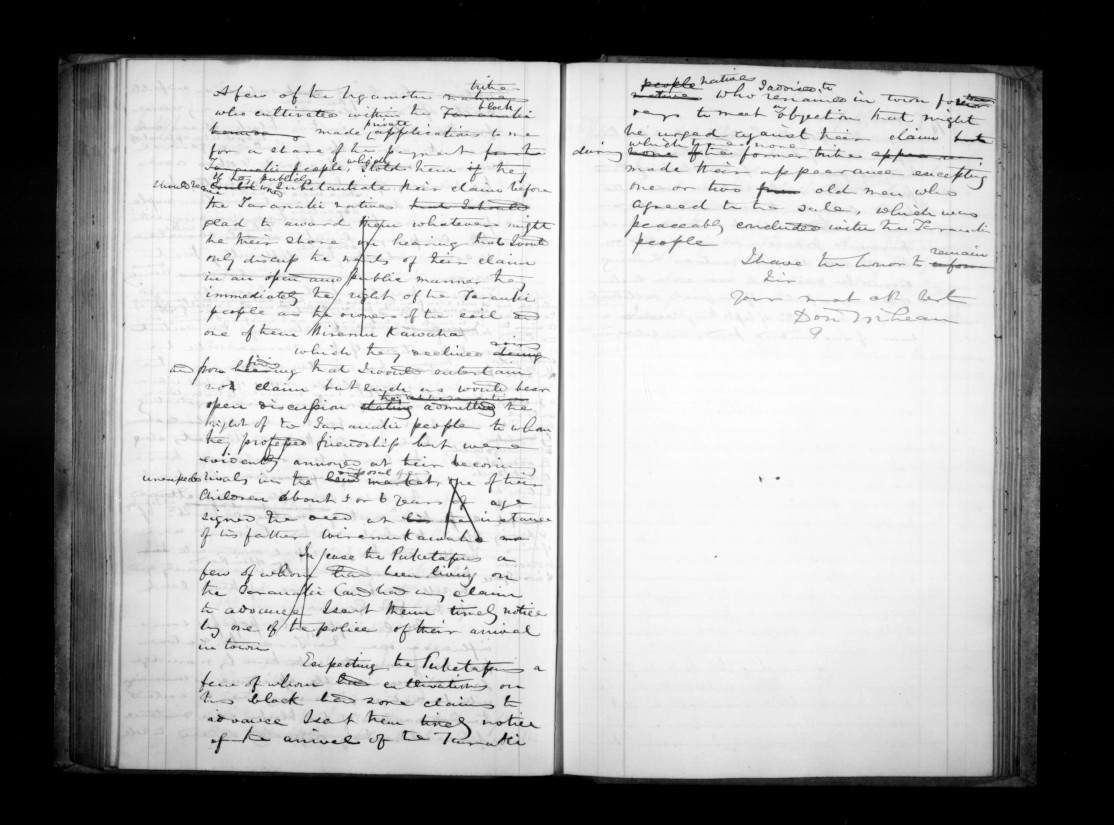 tribe
A few of the Ngamotu natives
who cultivated within the Taranaki block
private
made applications to me
for a share of the payment for the
Taranaki people, which I told them if they
if they publicly
should substantiate their claims before
the Taranaki natives that I should
glad to award them whatever might
be their share on hearing that I would
only discuss the merits of their claim
in an open and public manner they
immediately the right of the Taranaki
people as the owners of the soil and
one of them Wiremu Kawaho
which they declined
and from hearing that I would entertain
no claim but such as would bear
open discussion stating admitted the
right of the Taranaki people to whom
they professed friendship but were
evidently annoyed at their becoming
disposal of
unexpected rivals in the land market, one of their
Children about 5 or 6 years of age
signed the deed at the instance
of his father Wiremu Kawaho
In case the Puketapus a
few of whom had been living on
the Taranaki Land had any claim
to advance I sent them timely notice
by one of the police of their arrival
in town
Expecting the Puketapus a
few of whom had cultivations on
this block had some claims to
advance I sent them timely notice
of the arrival of the Taranaki
people natives I advised to
native who remained in town for
days to meet any objection that might
be urged against their claim but
which none
during none of the former tribe
made their appearance excepting
one or two from old men who
agreed to the sale, which was
peaceably concluded with the Taranaki
people
I have the honor to remain
Sir
Your most ob Servt
Don McLean